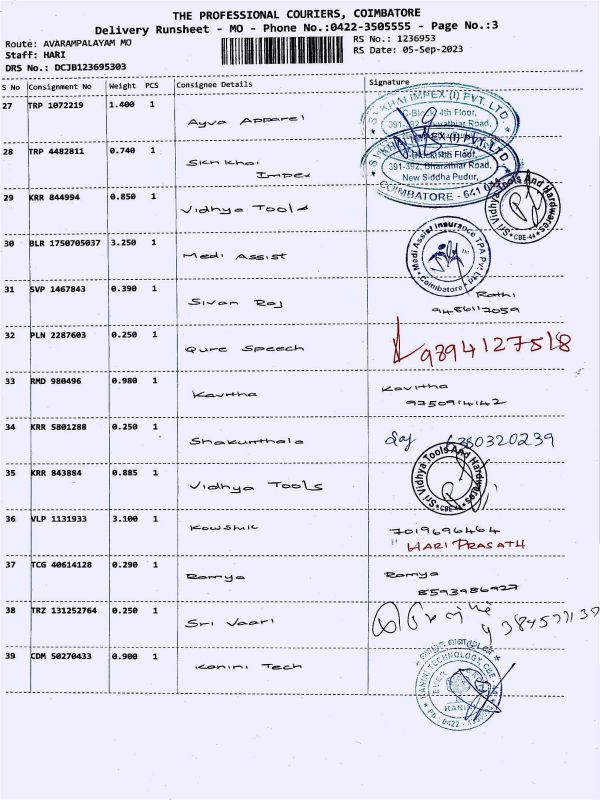 THE PROFESSIONAL COURIERS, COIMBATORE
Delivery Runsheet - MO - Phone No.:0422-3505555 - Page No.:3
Route: AVARAMPALAYAM MO
RS No.: 1236953
Staff: HARI
RS Date: 05-Sep-2023
DRS No.: DCJB123695303
S No Consignment No Weight PCS Consignee Details Signature
27 TRP 1072219 1.400 1 Ayva Apparel
SIKHAI IMPEX (I) PVT. LTD
C-Block, 4th Floor,
391-392, Bharathiar Road,
28 TRP 4482811 0.740 1 Sikhhai Impex
IMPEX (I) PVT. LTD
C-Block, 4th Floor,
391-392, Bharathiar Road,
New Siddha Pudur,
COIMBATORE - 641 044
29 KRR 844994 0.850 1 Vidhya Tools
Sri Vidhya Tools And Hardwares
CBE-44
30 BLR 1750705037 3.250 1 Medi Assist
Medi Assist Insurance TPA Pvt Ltd
Coimbatore
31 SVP 1467843 0.390 1 Sivan Raj
Rathi
9486117059
32 PLN 2287603 0.250 1 Qure Speech
9894127518
33 RMD 980496 0.980 1 Kavitha
Kavitha
9750914142
34 KRR 5801288 0.250 1 Shakunthala
6380320239
35 KRR 843884 0.885 1 Vidhya Tools
Sri Vidhya Tools And Hardwares
CBE-44
36 VLP 1131933 3.100 1 Kowshik
7019696464
HARI PRASATH
37 TCG 40614128 0.290 1 Ramya
Ramya
8593986927
38 TRZ 131252764 0.250 1 Sri Vaari
39 CDM 50270433 0.900 1 Kanini Tech
KANINI TECHNOLOGY, CBE
KANINI